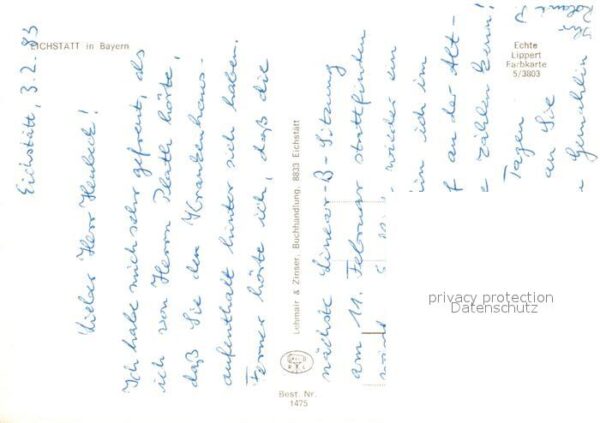 EICHSTÄTT in Bayern
Eichstätt, 3.2.83
Lieber Herr Heubeck!
Ich habe mich sehr gefreut, als
ich von Herrn Plath hörte,
daß Sie den Krankenhaus-
aufenthalt hinter sich haben.
Ferner hörte ich, daß die
Lehmair & Zinser, Buchhandlung, 8833 Eichstätt
nächste Linear-B-Sitzung
am 11. Februar stattfinden
wieder
ich im
an der Alt-
zählen kann!
Tagen
an Sie
Gemahlin
Echte
Lippert
Farbkarte
5/3803
Best. Nr.
1475
privacy protection
Datenschutz